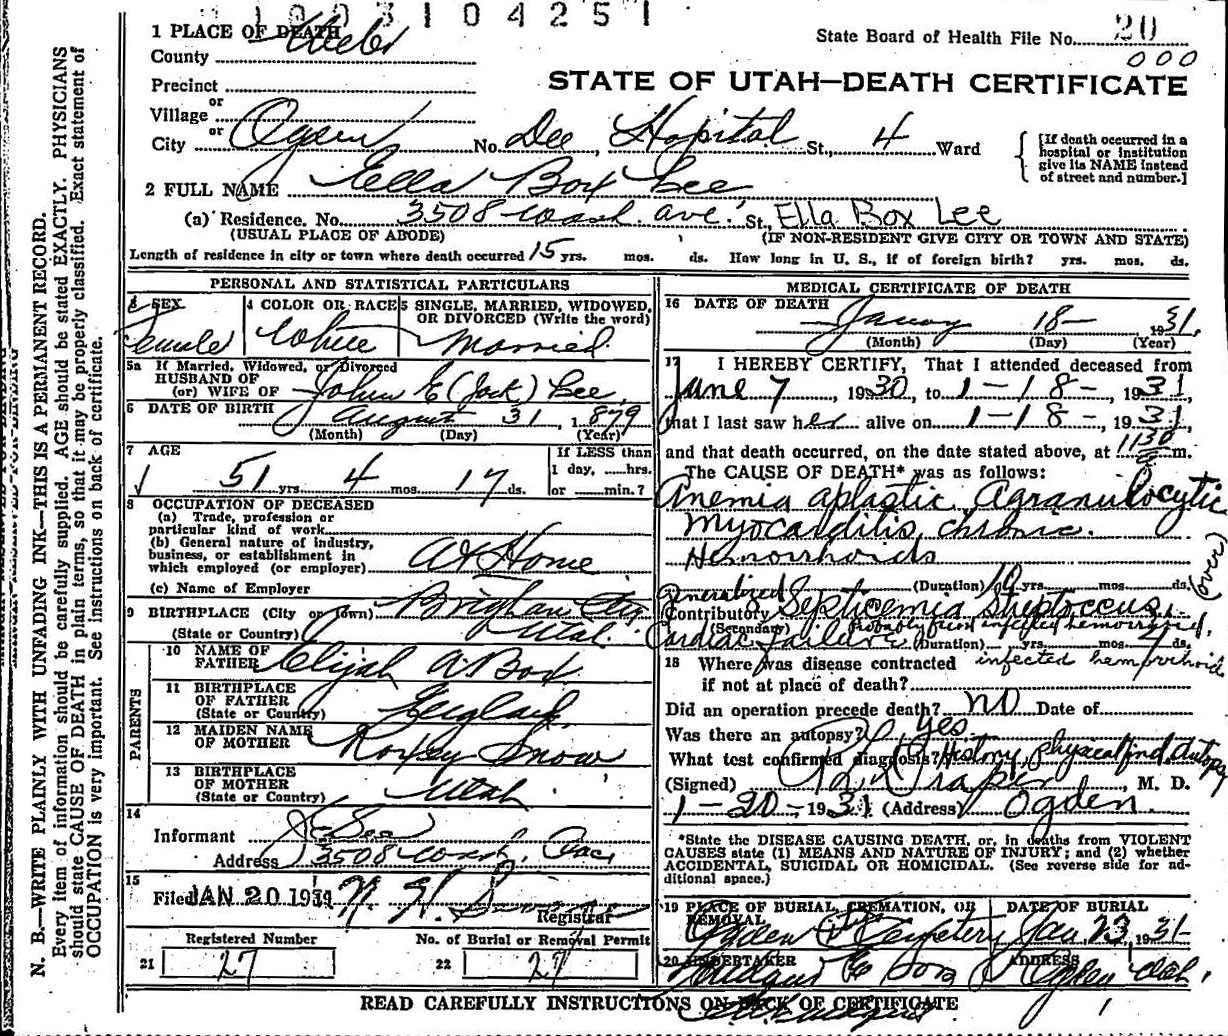 1003104251
1 PLACE OF DEATH
State Board of Health File No. 20
County Weber
000
STATE OF UTAH—DEATH CERTIFICATE
Precinct
or
Village
or
City Ogden No. Dee Hospital St., 4 Ward
[If death occurred in a
hospital or institution
give its NAME instead
of street and number.]
2 FULL NAME Ella Box Lee
(a) Residence. No. 3508 Wash. ave. St., Ella Box Lee
(USUAL PLACE OF ABODE) (IF NON-RESIDENT GIVE CITY OR TOWN AND STATE)
Length of residence in city or town where death occurred 15 yrs. mos. ds. How long in U. S., if of foreign birth? yrs. mos. ds.
PERSONAL AND STATISTICAL PARTICULARS
3 SEX 4 COLOR OR RACE 5 SINGLE, MARRIED, WIDOWED,
OR DIVORCED (Write the word)
Female White Married
5a If Married, Widowed, or Divorced
HUSBAND OF
(or) WIFE OF John E (Jack) Lee
6 DATE OF BIRTH August 31, 1879
(Month) (Day) (Year)
7 AGE
If LESS than
1 day, hrs.
or min.?
51 yrs. 4 mos. 17 ds.
8 OCCUPATION OF DECEASED
(a) Trade, profession or
particular kind of work
(b) General nature of industry,
business, or establishment in
which employed (or employer) At Home
(c) Name of Employer
9 BIRTHPLACE (City or Town) Brigham City
(State or Country) Utah
PARENTS
10 NAME OF
FATHER Elijah A Box
11 BIRTHPLACE
OF FATHER
(State or Country) England
12 MAIDEN NAME
OF MOTHER Roxey Snow
13 BIRTHPLACE
OF MOTHER
(State or Country) Utah
14
Informant J E Lee
Address 3508 Wash. Ave.
15
Filed JAN 20 1931
Registrar
Registered Number No. of Burial or Removal Permit
21 27 22 27
MEDICAL CERTIFICATE OF DEATH
16 DATE OF DEATH
18— 1931
(Month) (Day) (Year)
17 I HEREBY CERTIFY, That I attended deceased from
June 7 1930, to 1-18- 1931,
that I last saw her alive on 1-18- 1931,
and that death occurred, on the date stated above, at 1130 m.
The CAUSE OF DEATH* was as follows:
Anemia aplastic Agranulocytic
Myocarditis, chronic.
Hemorrhoids
(over)
(Duration) 10 yrs. mos. ds.
Generalized
Contributory Septicemia Streptoccus
(Secondary) Probably from infected hemorrhoid.
Cardiac failure (Duration) yrs. mos. ds.
18 Where was disease contracted infected hemorrhoid
if not at place of death?
Did an operation precede death? no Date of
Was there an autopsy? Yes
What test confirmed diagnosis? History, physical find, autopsy
(Signed) Draper, M. D.
1-20-1931 (Address) Ogden.
*State the DISEASE CAUSING DEATH, or, in deaths from VIOLENT
CAUSES state (1) MEANS AND NATURE OF INJURY; and (2) whether
ACCIDENTAL, SUICIDAL OR HOMICIDAL. (See reverse side for ad-
ditional space.)
19 PLACE OF BURIAL, CREMATION, OR
REMOVAL
DATE OF BURIAL
Ogden City Cemetery Jan 23, 1931
20 UNDERTAKER ADDRESS
& Sons Ogden Utah.
READ CAREFULLY INSTRUCTIONS ON BACK OF CERTIFICATE
N. B.—WRITE PLAINLY WITH UNFADING INK—THIS IS A PERMANENT RECORD.
Every item of information should be carefully supplied. AGE should be stated EXACTLY. PHYSICIANS
should state CAUSE OF DEATH in plain terms, so that it may be properly classified. Exact statement of
OCCUPATION is very important. See instructions on back of certificate.